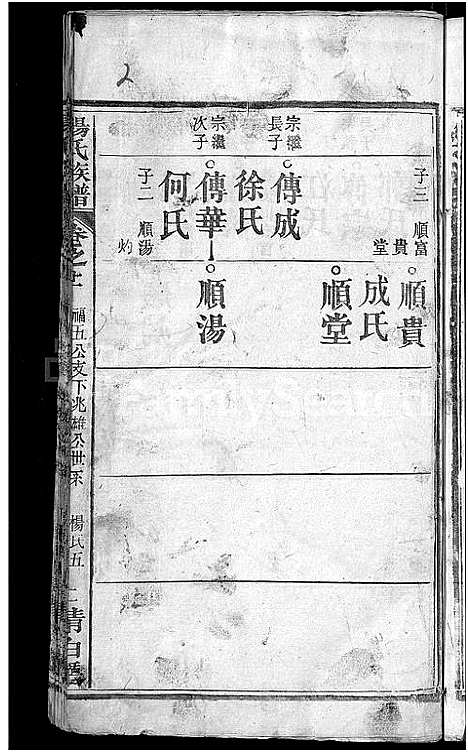 子三 順富
貴
堂
順貴
成氏
順堂
宗繼
長子
傳成
徐氏
宗繼
次子
傳華
順湯
何氏
子二 順湯
灼
楊氏族譜
卷之廿
禰五公支下兆雄公世系
楊氏五
清白堂
2
FamilySearch